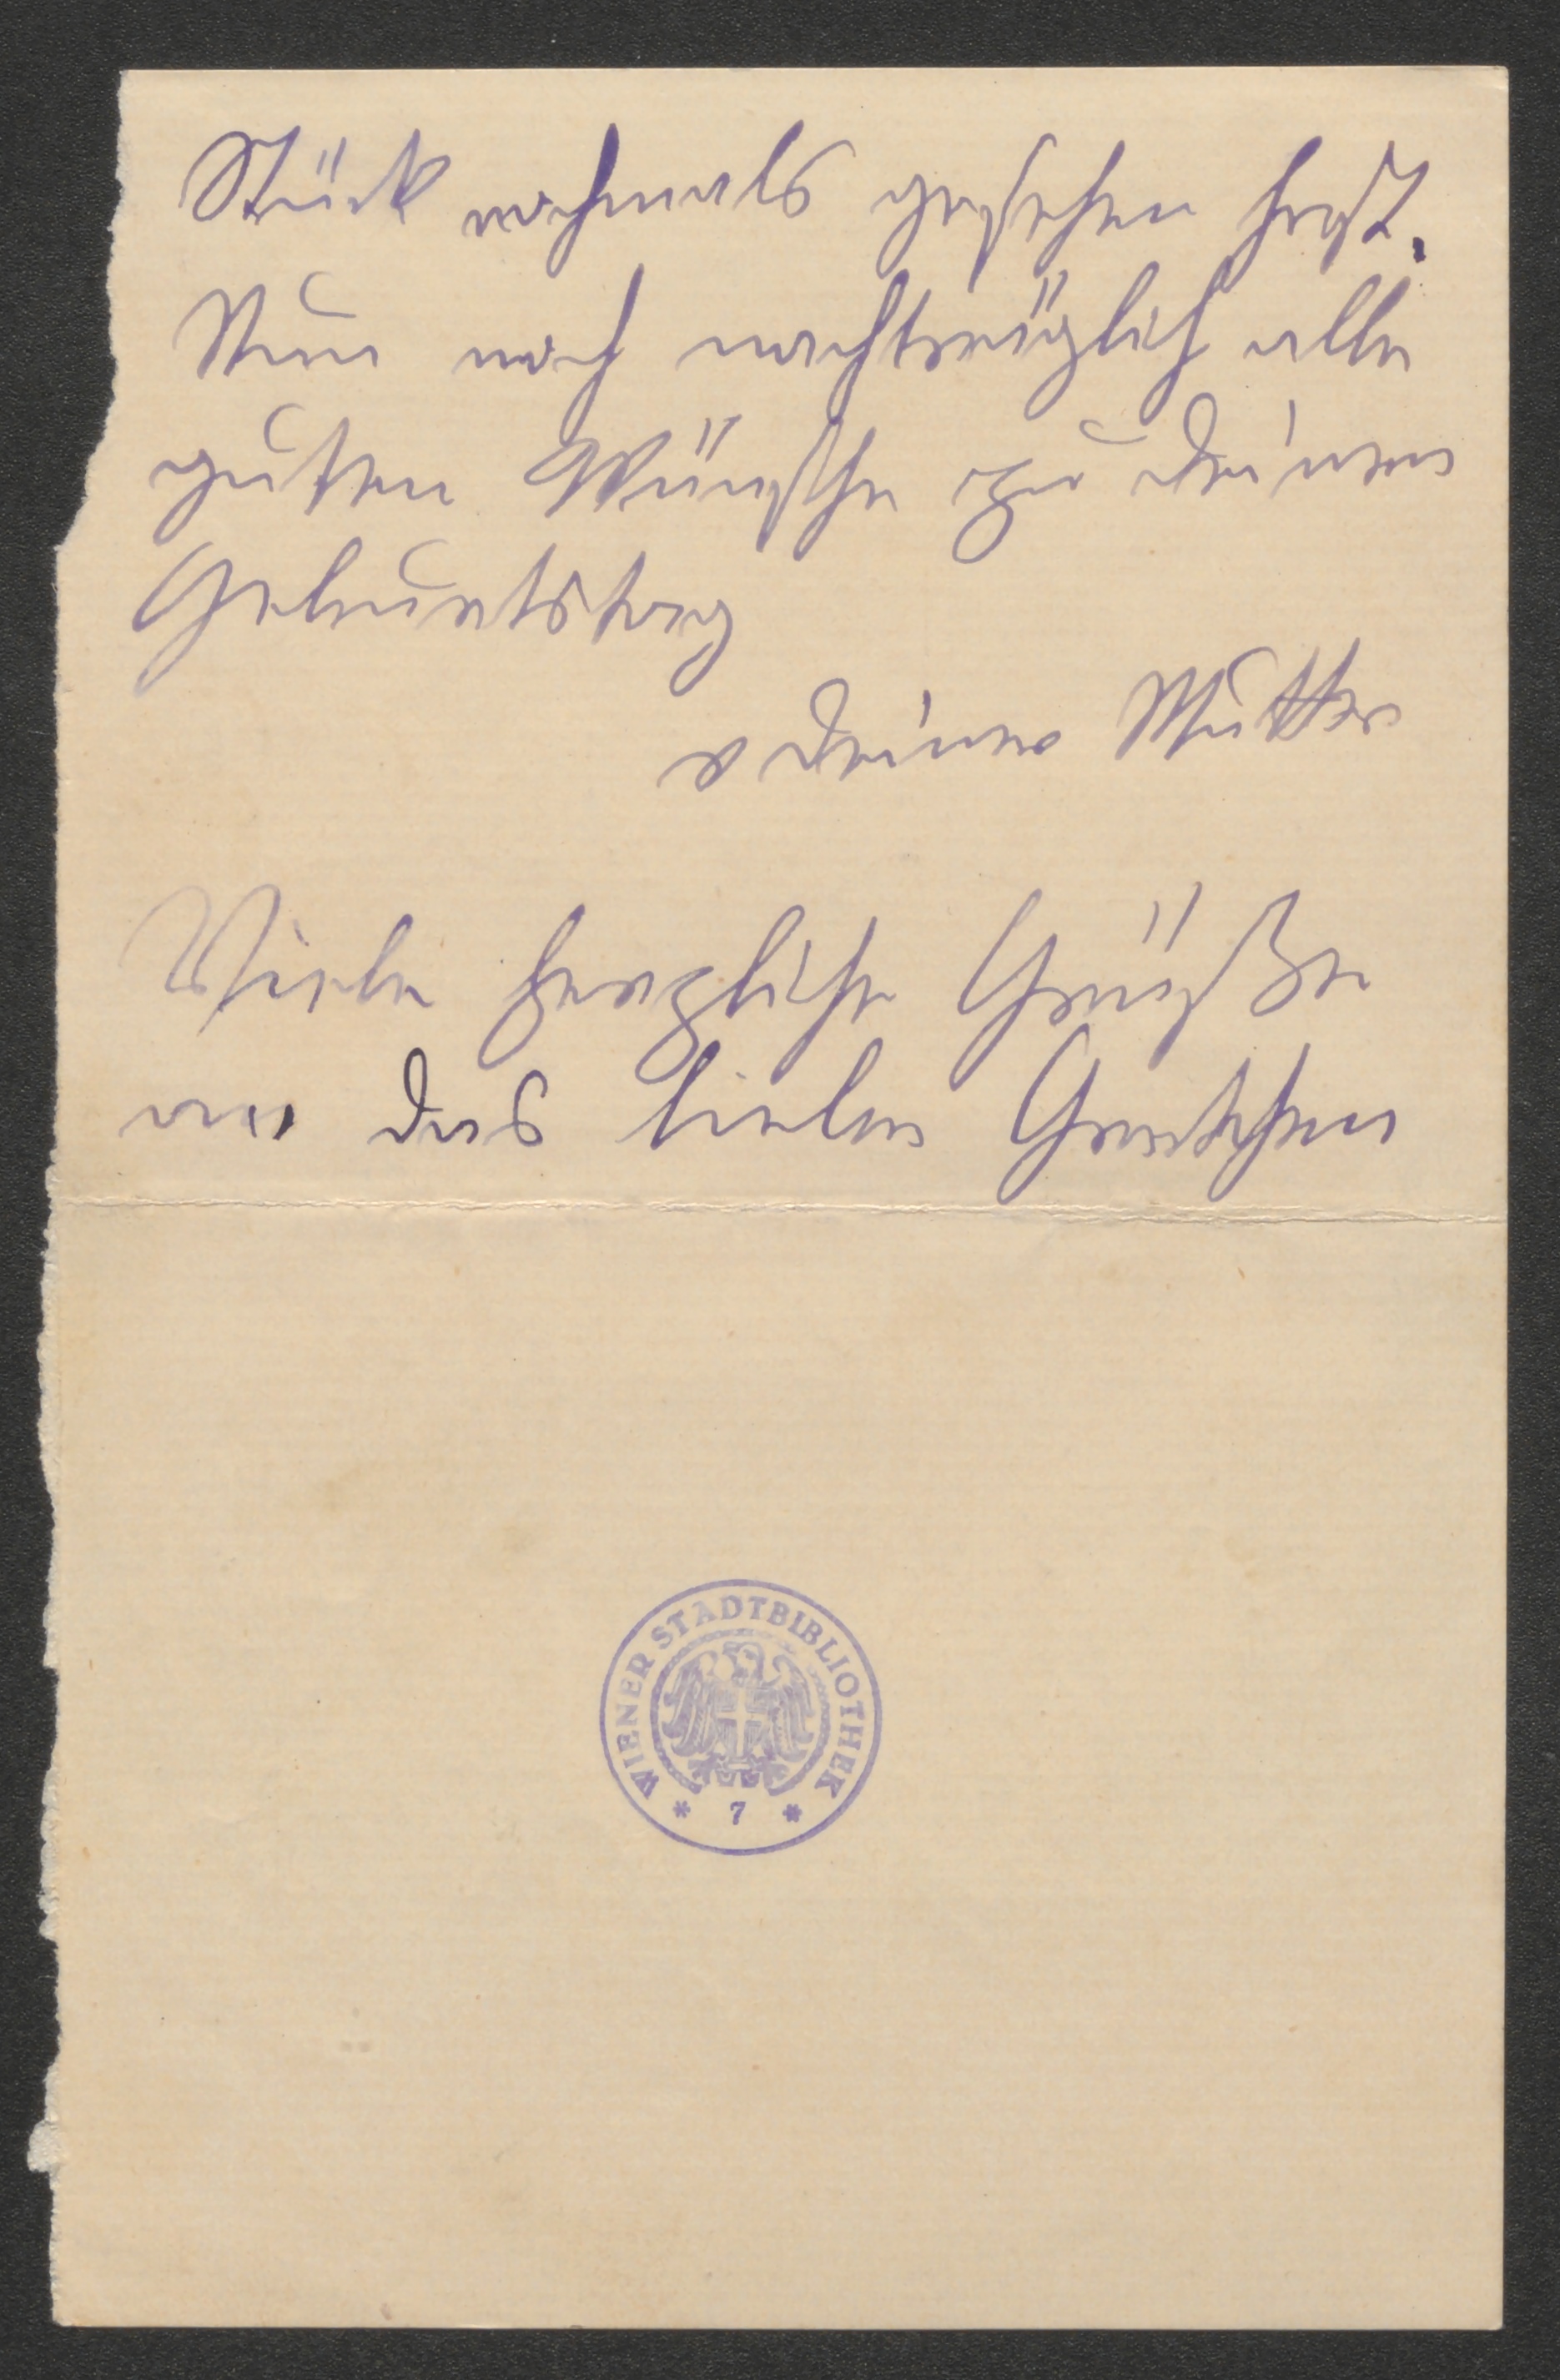 Stück nochmals gesehen hast.
Nun noch nachträglich alle
guten Wünsche zu Deinem
Geburtstag
v Deiner Mutter
Viele herzliche Grüße
an das liebe Gretchen
WIENER STADTBIBLIOTHEK
* 7 *